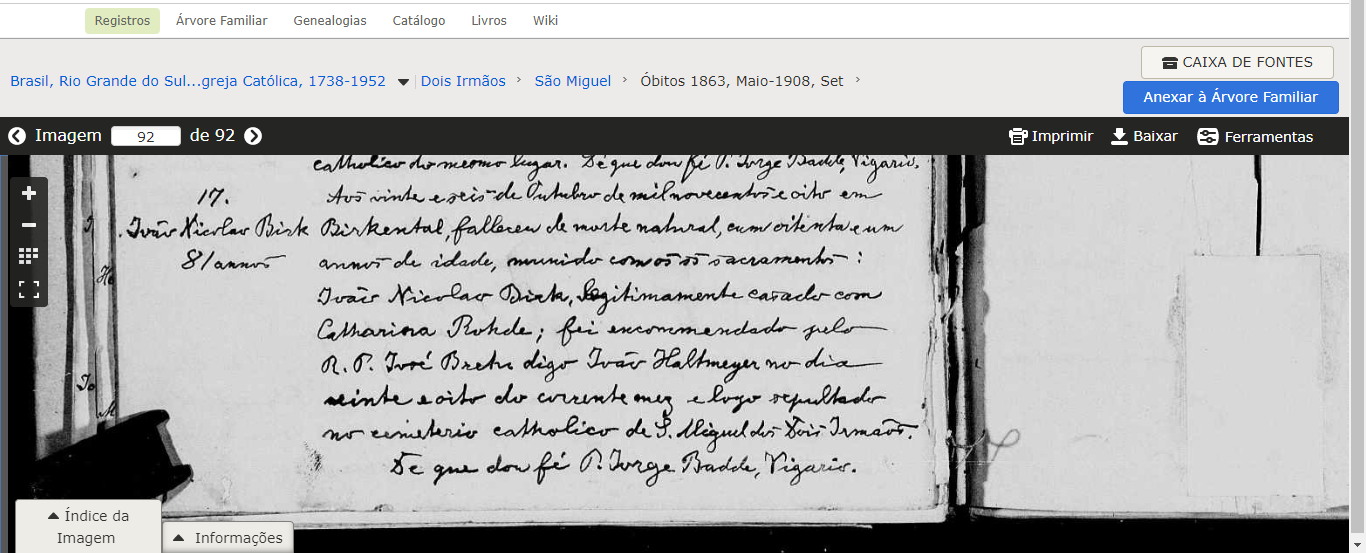 Registros Árvore Familiar Genealogias Catálogo Livros Wiki
Brasil, Rio Grande do Sul...greja Católica, 1738-1952 Dois Irmãos › São Miguel › Óbitos 1863, Maio-1908, Set ›
CAIXA DE FONTES
Anexar à Árvore Familiar
Imagem 92 de 92
Imprimir Baixar Ferramentas
catholico do mesmo lugar. De que dou fé P. Jorge Badde, Vigario.
17.
João Nicolao Birk
81 annos
Aos vinte e seis de Outubro de mil novecentos e oito em
Birkental, falleceu de morte natural, com oitenta e um
annos de idade, munido com os ss sacramentos:
João Nicolao Birk, legitimamente casado com
Catharina Rohde; foi encommendado pelo
R. P. José digo João Haltmeyer no dia
vinte e oito do corrente mez e logo sepultado
no cemeterio catholico de S. Miguel dos Dois Irmaõs.
De que dou fé P. Jorge Badde, Vigario.
Índice da
Imagem
Informações